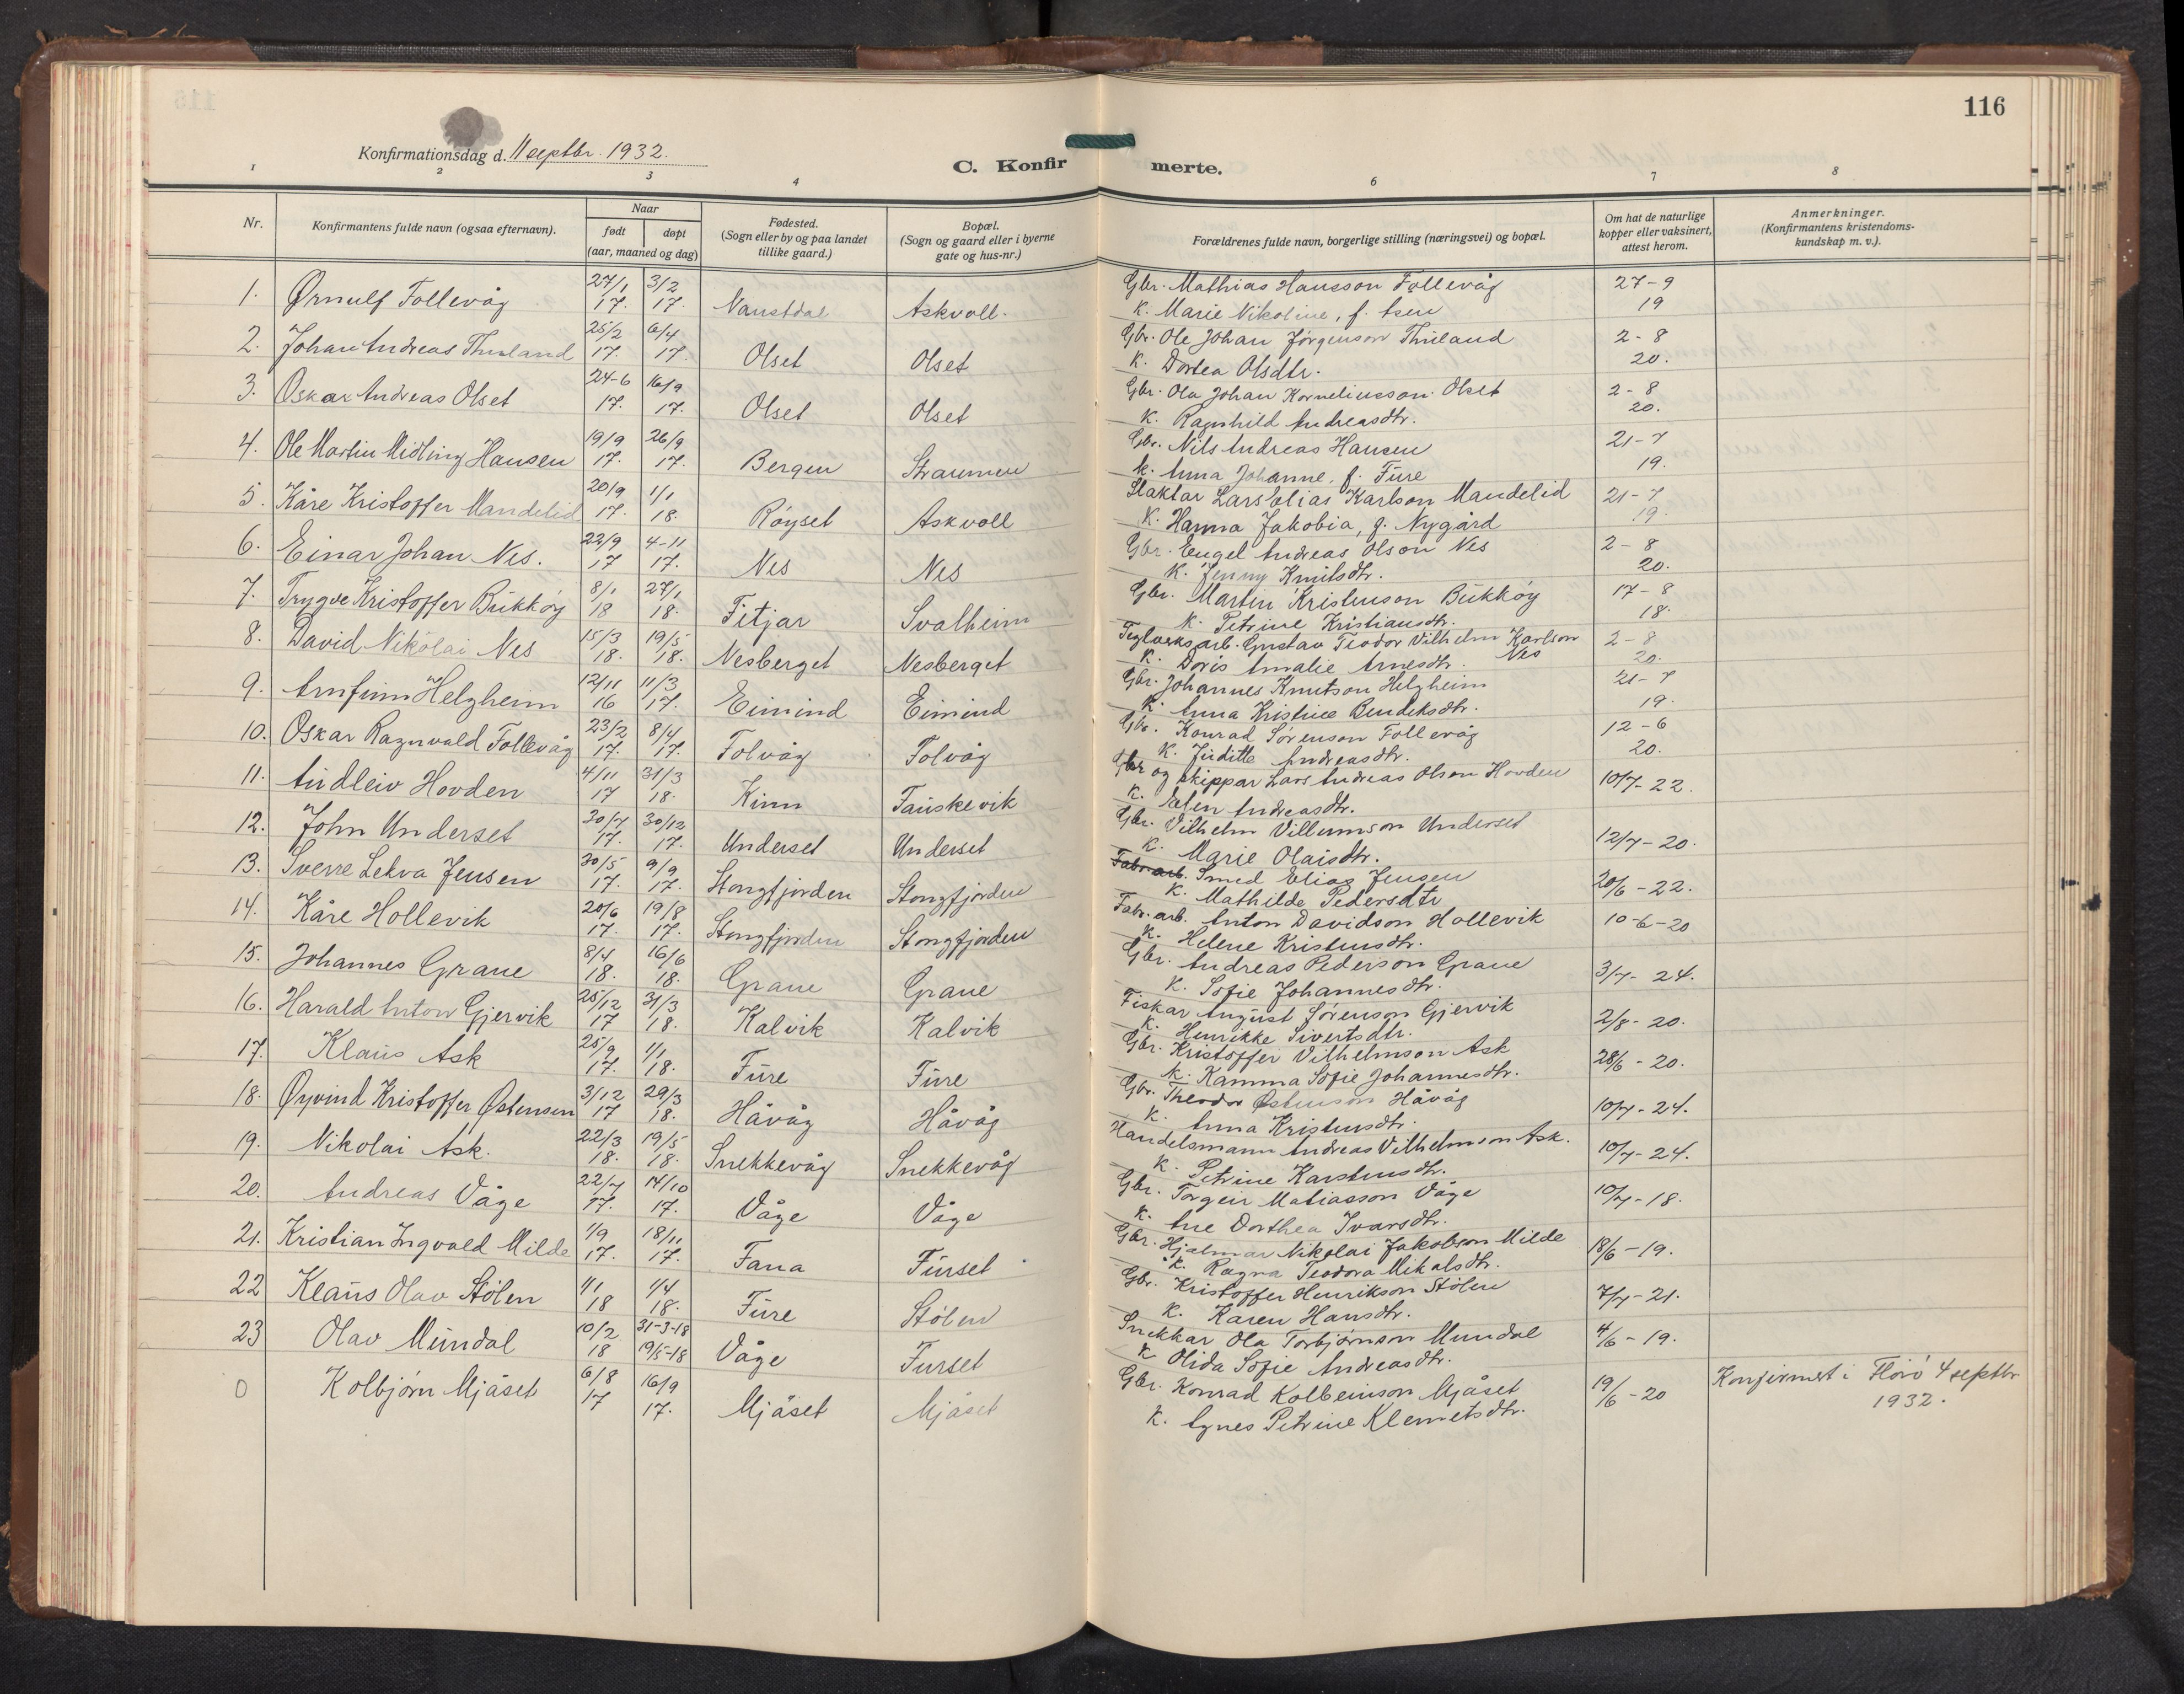 116
Konfirmationsdag d. 11 septbr. 1932.
C. Konfirmerte.
1 2 3 4 6 7 8
Nr. Konfirmantens fulde navn (ogsaa efternavn). Naar født døpt (aar, maaned og dag) Fødested. (Sogn eller by og paa landet tillike gaard.) Bopæl. (Sogn og gaard eller i byerne gate og hus-nr.) Forældrenes fulde navn, borgerlige stilling (næringsvei) og bopæl. Om hat de naturlige kopper eller vaksinert, attest herom. Anmerkninger. (Konfirmantens kristendomskundskap m. v.).
1. Ørnulf Follevåg 27/1 17. 3/2 17. Naustdal Askvoll. Gbr. Mathias Hansson Follevåg 27-9 19
K. Marie Nikoline, f. Asen
2. Johan Andreas Thuland 25/2 17. 6/4 17. Olset Olset Gbr. Ole Johan Jørgenson Thuland 2-8 20.
K. Dortea Olsdtr.
3. Oskar Andreas Olset 24-6 17. 16/9 17. Olset Olset Gbr. Ola Johan Korneliusson Olset 2-8 20.
K. Ragnhild Andreasdtr.
4. Ole Martin Midling Hansen 19/9 17. 26/9 17. Bergen Straumen Gbr. Nils Andreas Hansen 21-7 19.
K. Anna Johanne, f. Fure
5. Kåre Kristoffer Mandelid 20/9 17. 1/1 18. Röyset Askvoll Slaktar Lars Elias Karlson Mandelid 21-7 19.
K. Hanna Jakobia, f. Nygård
6. Einar Johan Nes. 22/9 17 4-11 17. Nes Nes Gbr. Engel Andreas Olson Nes 2-8 20.
K. Jenny Knutsdtr.
7. Trygve Kristoffer Bukköy 8/1 18 27/1 18. Fitjar Svalheim Gbr. Martin Kristenson Bukköy 17-8 18.
K. Petrine Kristiansdtr.
8. David Nikolai Nes 15/3 18. 19/5 18. Nesberget Nesberget Teglverksarb. Gustav Teodor Vilhelm Karlson Nes 2-8 20.
K. Doris Amalie Arnesdtr.
9. Arnfinn Helgheim 12/11 16 11/3 17. Eimind Eimind Gbr. Johannes Knutson Helgheim 21-7 19.
K. Anna Kristine Bendiksdtr.
10. Oskar Ragnvald Follevåg 23/2 17. 8/4 17. Folvåg Folvåg Gbr. Konrad Sörenson Follevåg 12-6 20.
K. Juditte Andreasdtr.
11. Audleiv Hovden 4/11 17 31/3 18. Kinn Fauskevik Gbr og skippar Lars Andreas Olson Hovden 10/7-22.
K. Elen Andreasdtr.
12. John Underset 30/7 17. 30/12 17. Underset Underset Gbr. Vilhelm Villumson Underset 12/7-20.
K. Marie Olaisdtr.
13. Sverre Lekva Jensen 30/5 17. 9/9 17. Stongfjorden Stongfjorden Fabr.arb. Smed Elias Jensen 20/6-22.
K. Mathilde Pedersdtr
14. Kåre Hollevik 20/6 17. 19/8 17. Stongfjorden Stongfjorden Fabr.arb. Anton Davidson Hollevik 10-6-20
K. Helene Kristensdtr.
15. Johannes Grane 8/4 18. 16/6 18. Grane Grane Gbr. Andreas Pederson Grane 3/7-24.
K. Sofie Johannesdtr.
16. Harald Anton Gjervik 25/12 17 31/3 18. Kalvik Kalvik Fiskar August Sörenson Gjervik 2/8-20.
K. Henrikke Sivertsdtr.
17. Klaus Ask 25/9 17. 1/1 18. Fure Fure Gbr. Kristoffer Vilhelmson Ask 28/6-20.
K. Kamma Sofie Johannesdtr.
18. Øyvind Kristoffer Østensen 3/12 17 29/3 18. Håvåg Håvåg Gbr. Theodor Østenson Håvåg 10/7-24.
K. Anna Kristensdtr.
19. Nikolai Ask. 22/3 18. 19/5 18. Snekkevåg Snekkevåg Handelsmann Andreas Vilhelmson Ask. 10/7-24.
K. Petrine Karstensdtr.
20. Andreas Våge 22/7 17. 14/10 17. Våge Våge Gbr. Torgeir Matiasson Våge 10/7-18.
K. Ane Dorthea Ivarsdtr.
21. Kristian Ingvald Milde 1/9 17. 18/11 17. Fana Furset Gbr. Hjalmar Nikolai Jakobson Milde 18/6-19.
K. Ragna Teodora Mikalsdtr.
22 Klaus Olav Stölen 1/1 18 1/4 18. Fure Stölen Gbr. Kristoffer Henrikson Stölen 7/7-21.
K. Karen Hansdtr.
23 Olav Mundal 10/2 18 31-3-18 19/5-18 Våge Furset Snekkar Ola Torbjörnson Mundal 4/6-19.
K. Olida Sofie Andreasdtr.
0 Kolbjörn Mjåset 6/8 17 16/9 17. Mjåset Mjåset Gbr. Konrad Kolbeinson Mjåset 19/6-20 Konfirmert i Florö 4 septbr 1932.
K. Agnes Petrine Klemetsdtr.